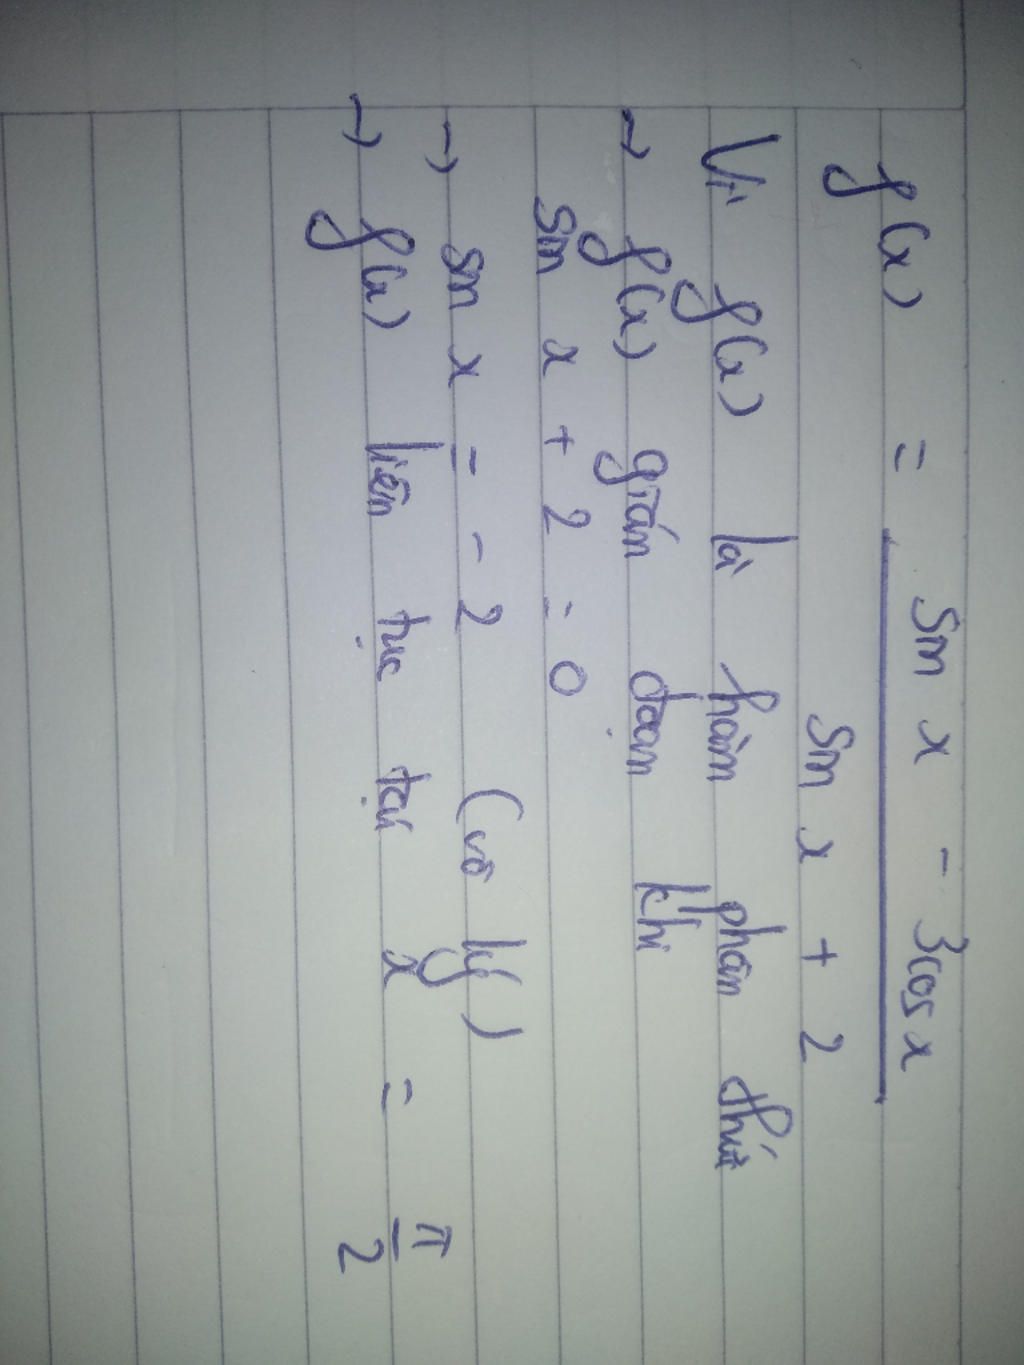 f(x) = sin x - 3cos x
sin x + 2
Vì f(x) là hàm phân thức
→ f(x) gián đoạn khi
sin x + 2 = 0
→ sin x = - 2 (vô lý)
→ f(x) liên tục tại x = π/2